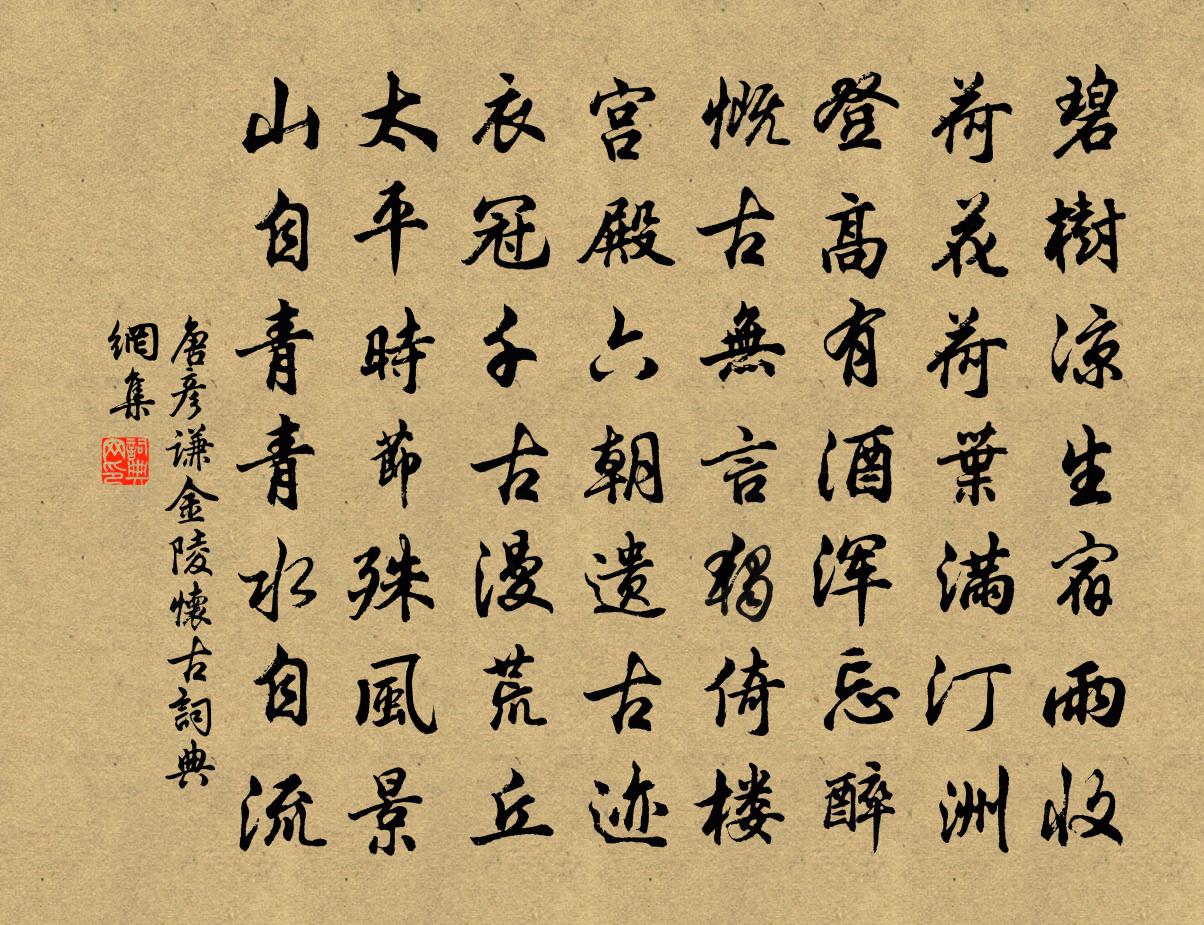 碧樹涼生宿雨收
荷花荷葉滿汀洲
登高有酒渾忘醉
慨古無言獨倚楼
宫殿六朝遗古迹
衣冠千古漫荒丘
太平時節殊風景
山自青青水自流
唐彦谦金陵懷古詞典
網集
詞典网印